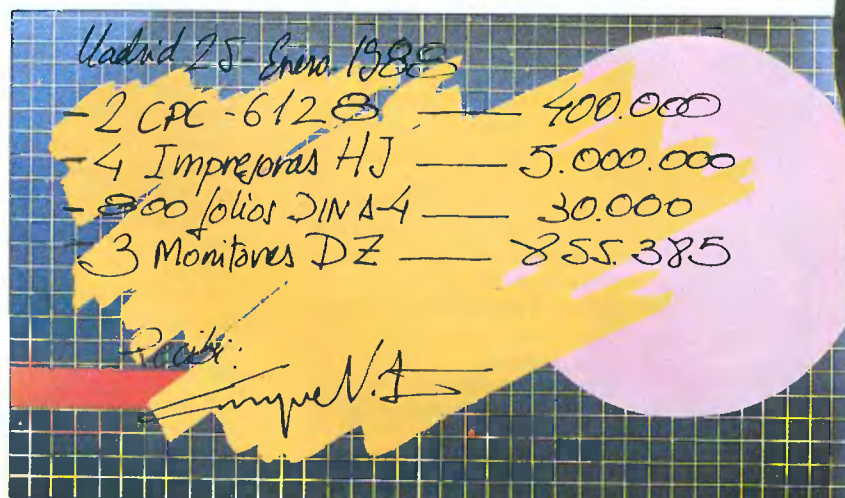 Madrid 25-Enero. 1988
- 2 CPC - 6128 — 400.000
- 4 Impresoras HJ — 5.000.000
- 800 folios DIN A-4 — 30.000
- 3 Monitores DZ — 855.385
Recibi:
Enrique N.